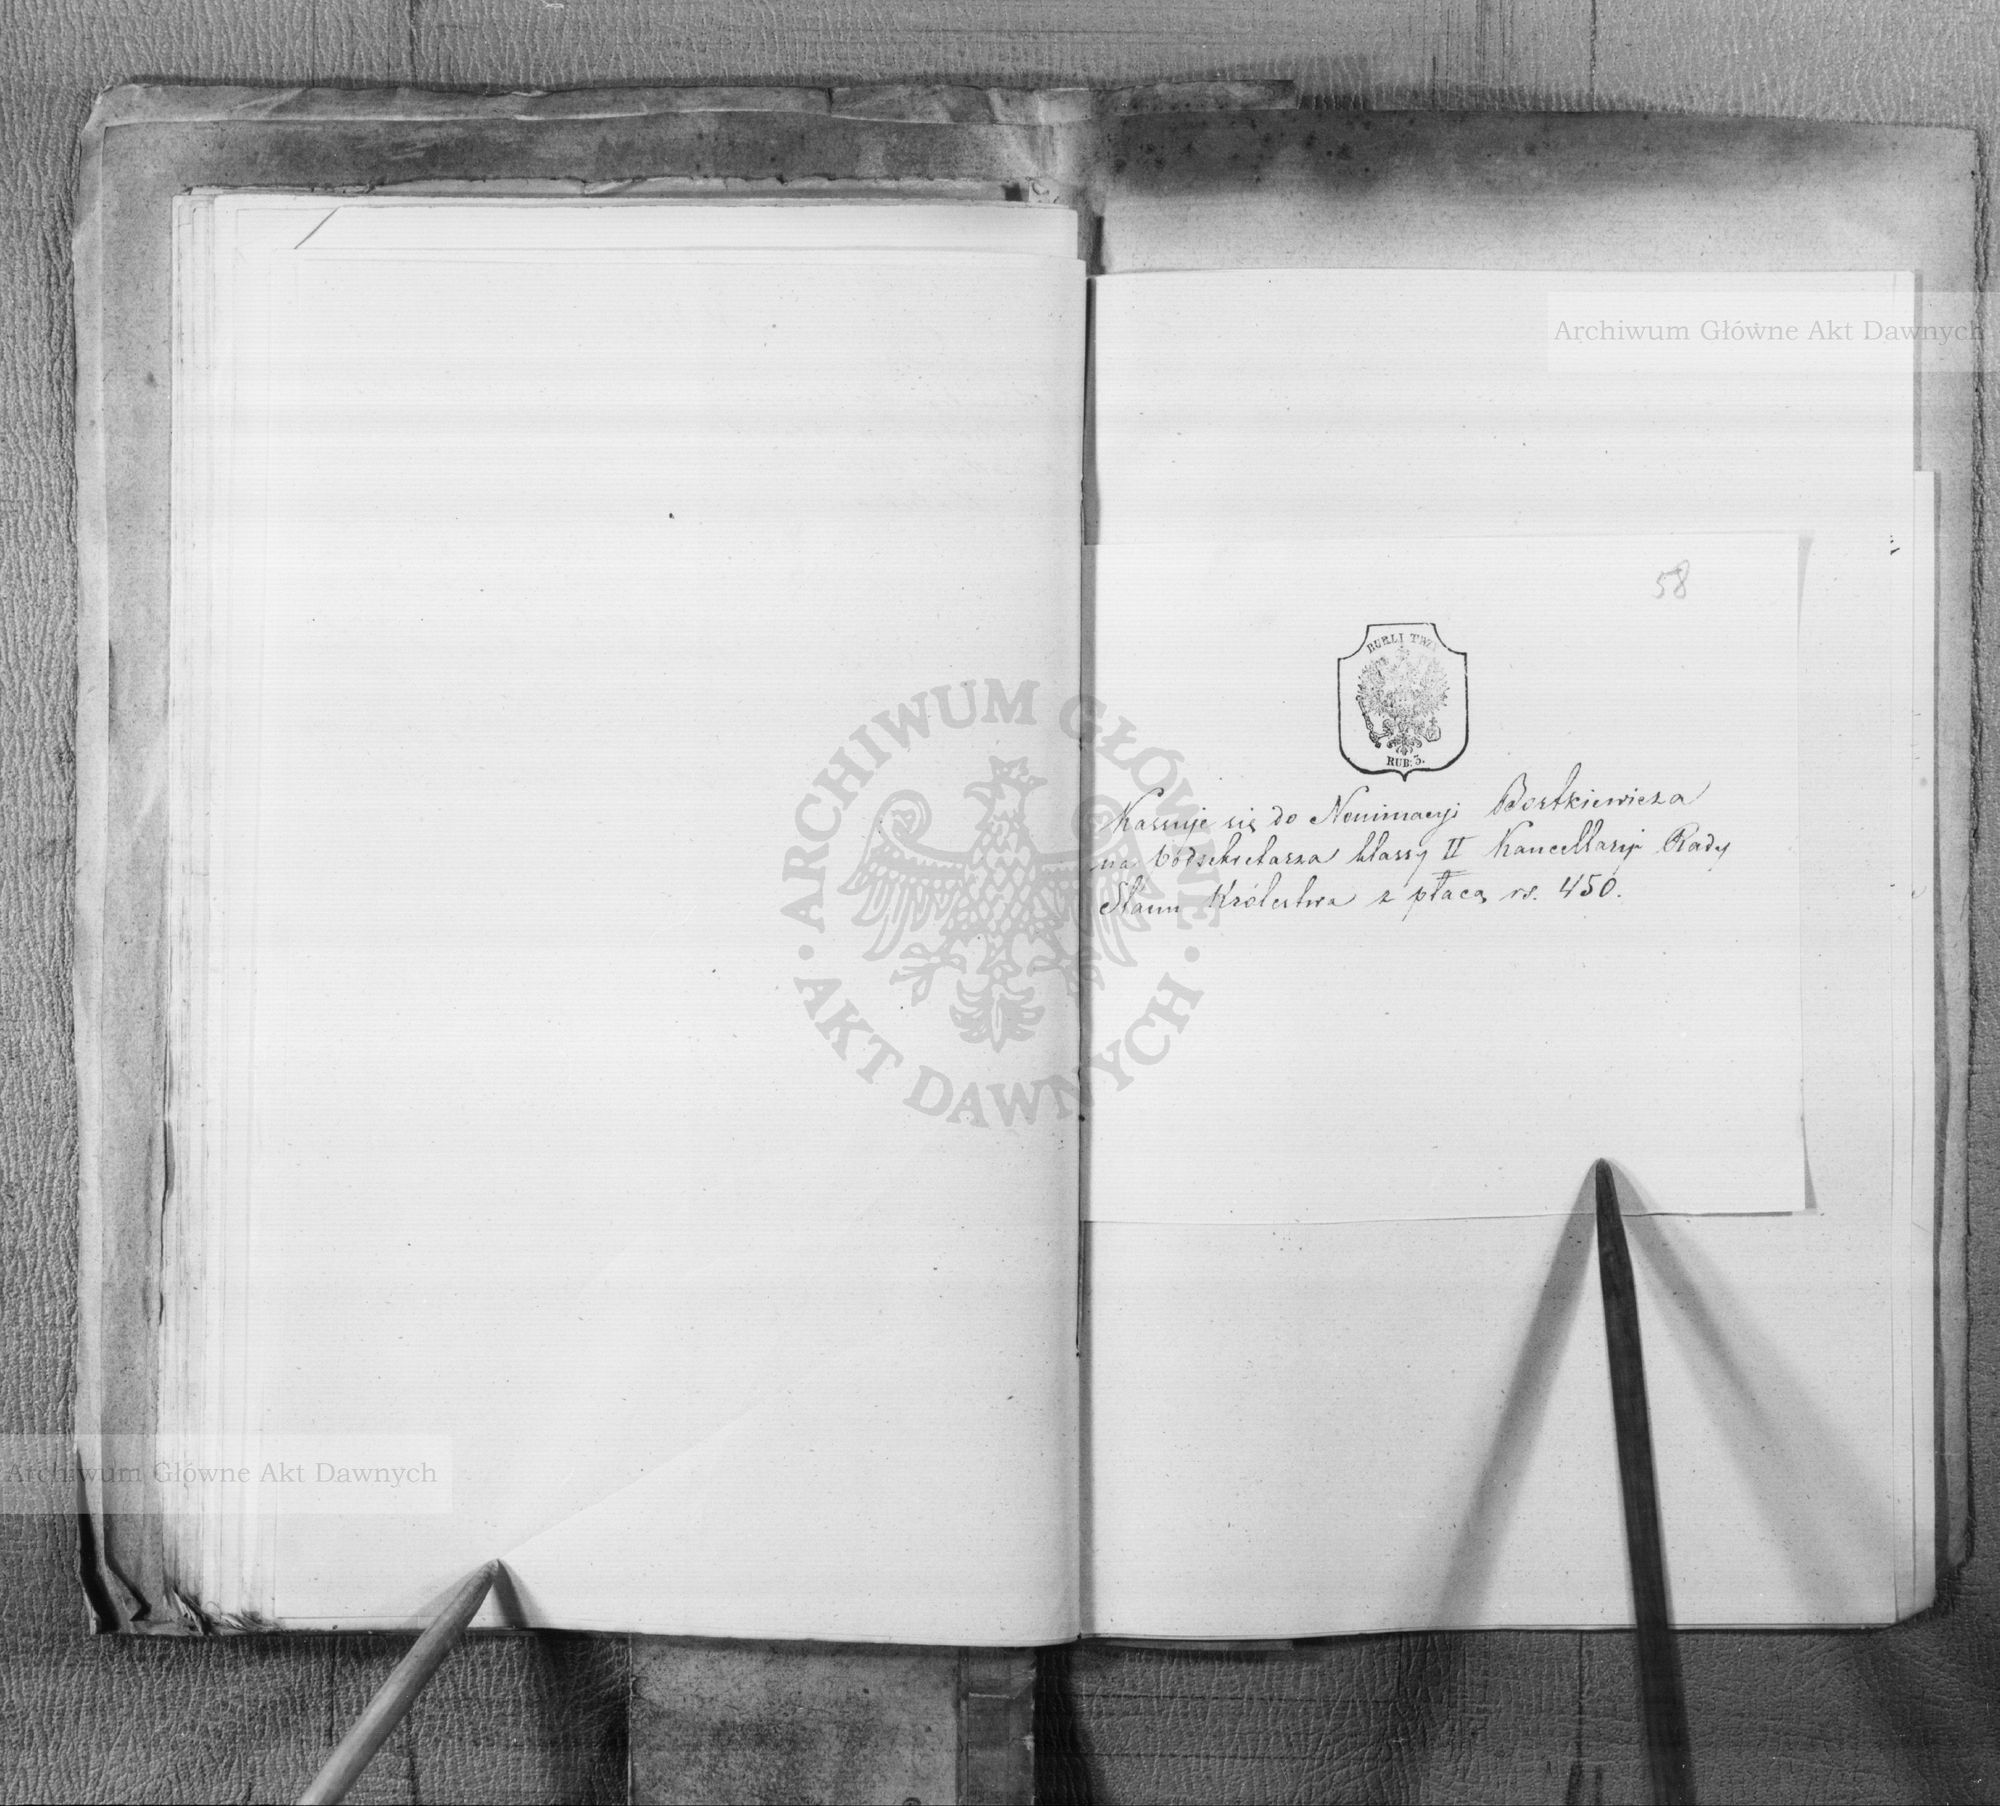 Archiwum Główne Akt Dawnych
58
RUBLI TRZY
RUB: 3.
Kassuje się do Nominacyi Bortkiewicza
na Podsekretarza klassy II Kancellaryi Rady
Stanu Królestwa z płacą rs. 450.
ARCHIWUM GŁÓWNE
· AKT DAWNYCH ·
Archiwum Główne Akt Dawnych